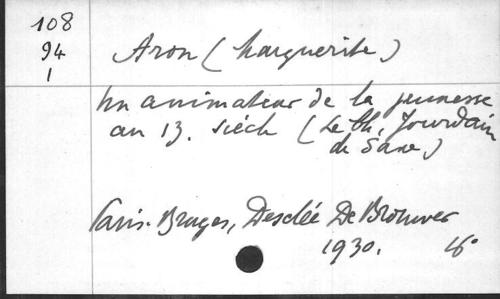 108
94
1
Aron (Marguerite)
Un animateur de la jeunesse
au 13. siècle (Le Bh, Jourdain
de Saxe)
Paris-Bruges, Desclée De Brouwer
1930. 16°